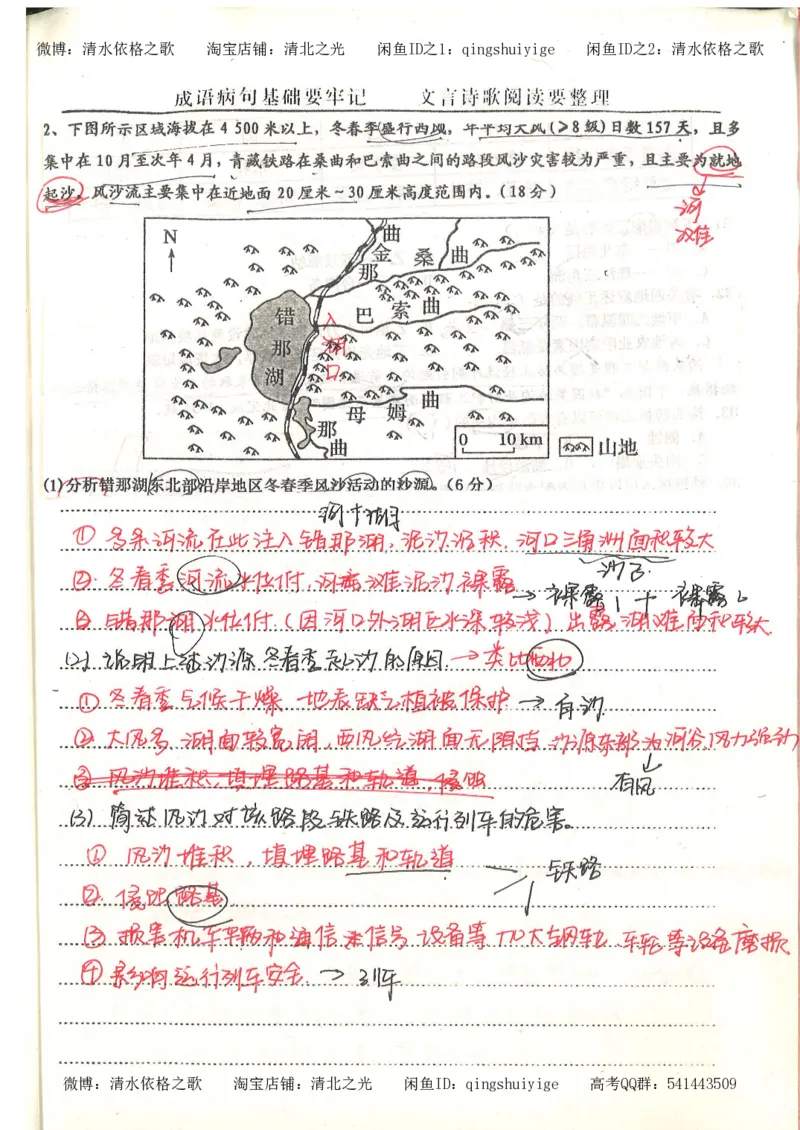 微博：清水依格之歌 淘宝店铺：清北之光 闲鱼ID之1：qingshuiyige 闲鱼ID之2：清水依格之歌
成语病句基础要牢记 文言诗歌阅读要整理
2、下图所示区域海拔在4 500米以上，冬春季盛行西风，年平均大风(≥8级)日数157天，且多
集中在10月至次年4月，青藏铁路在桑曲和巴索曲之间的路段风沙灾害较为严重，且主要为就地
起沙。风沙流主要集中在近地面20厘米～30厘米高度范围内。(18分)
河
湖
N
那金曲
桑曲
巴索曲
错那湖
入湖口
母姆曲
那曲
0 10 km
山地
(1)分析错那湖东北部沿岸地区冬春季风沙活动的沙源。(6分)
① 多条河流在此注入错那湖，泥沙沉积，河口三角洲面积较大
②. 冬春季河流水位低，河滩泥沙裸露
沙石
→裸露1 + 裸露2
③ 错那湖水位低(因河口外湖区水深较浅)出露湖滩面积较大
(2) 说明上述沙源冬春季起沙的原因 →类比西北
① 冬春季气候干燥 地表缺乏植被保护 → 有沙
② 大风多，湖面较宽阔，西风经湖面无阻挡，沙源东部为河谷，风力强劲
↓
有风
③ 风沙堆积，填埋路基和轨道，侵蚀
(3) 简述风沙对该路段铁路及运行列车的危害。
① 风沙堆积，填埋路基和轨道
铁路
② 侵蚀路基
③ 损害机车车辆和通信、信号设备等 加大钢轨、车轮等设备磨损
④ 影响运行列车安全. → 列车
微博：清水依格之歌 淘宝店铺：清北之光 闲鱼ID：qingshuiyige 高考QQ群：541443509